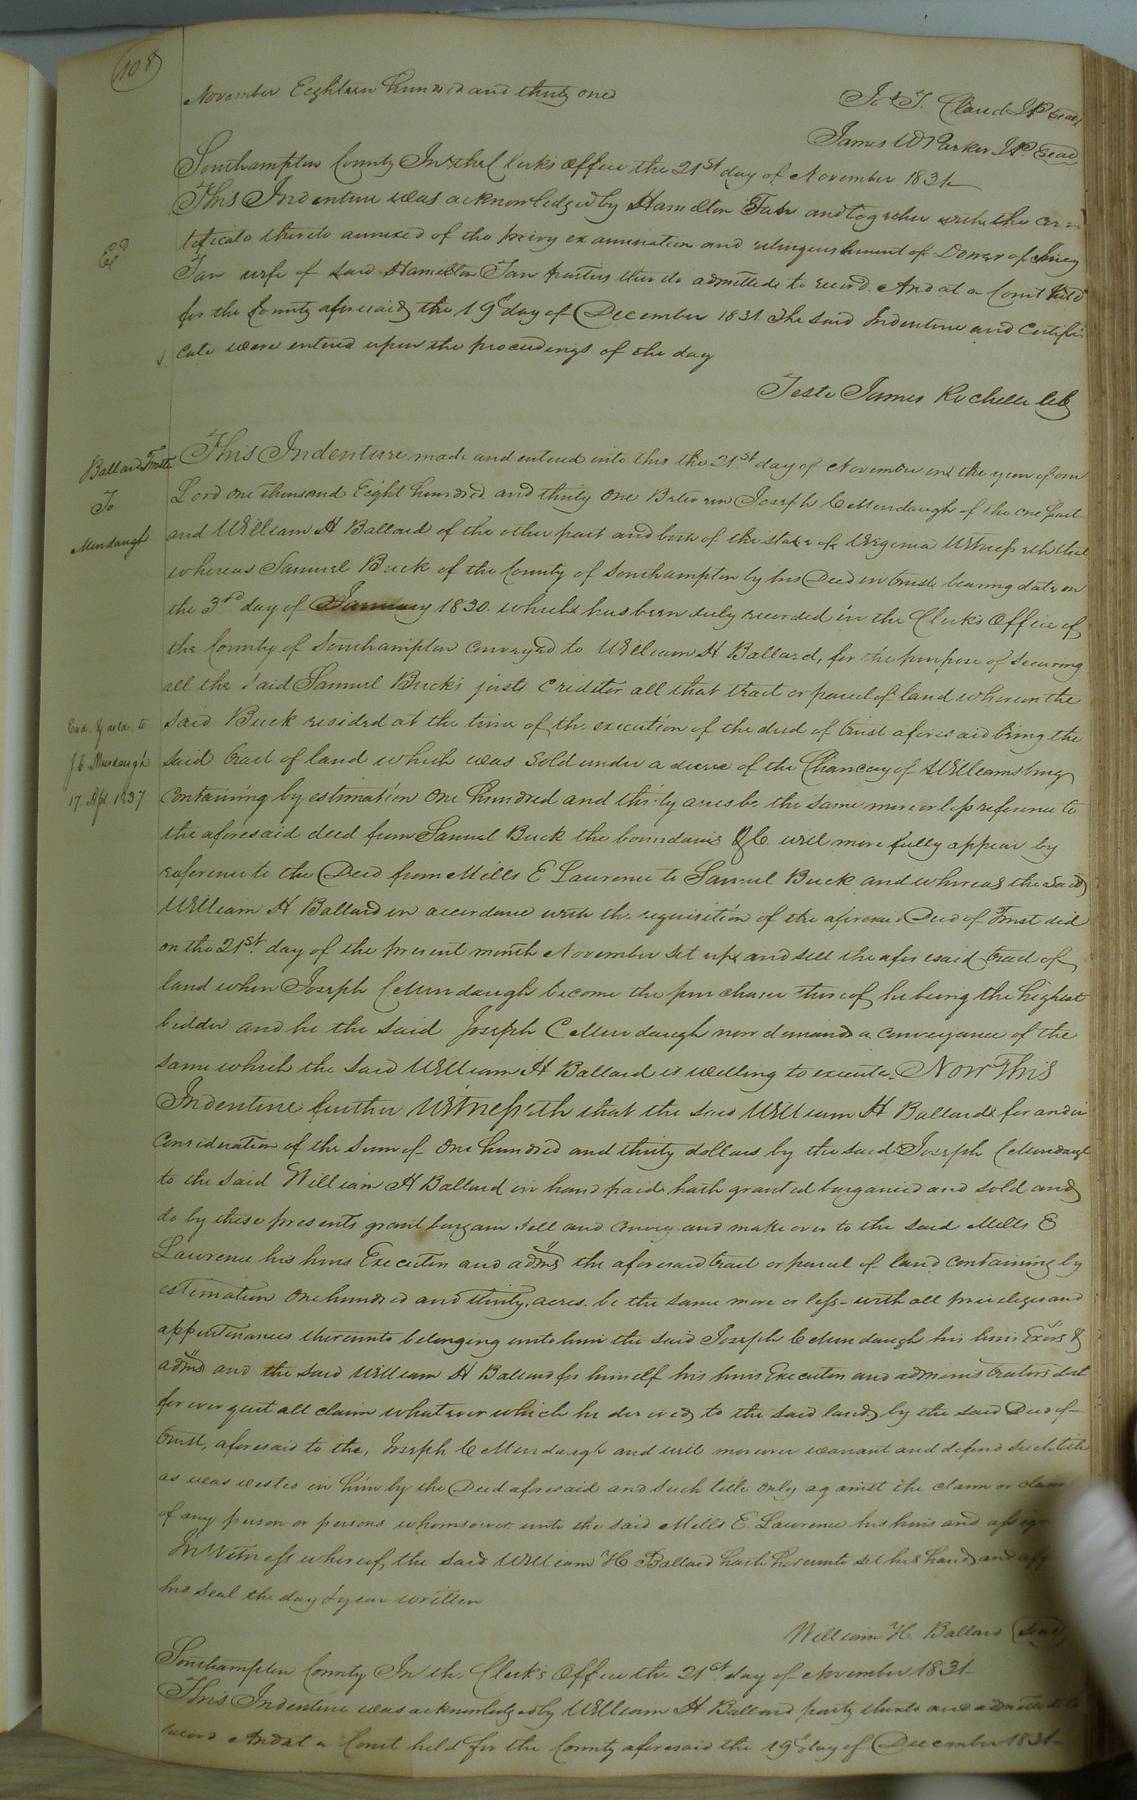 108
November Eighteen hundred and thirty one
J. T. Claud JP Seal
James W Parker JP Seal
Southampton County In the Clerks Office the 21st day of November 1831
This Indenture was acknowledged by Hamelton and together with the cer
Exd
tificate thereto annexed of the privy examination and relinquishment of Dower of
wife of said Hamelton parties thereto admitted to record. And at a Court held
for the County aforesaid the 19th day of December 1831 The said Indenture and Certifi
cate were entered upon the proceedings of the day
Teste James Rochelle clk
Ballard Trustee
To
Mundaugh
This Indenture made and entered into this the 21st day of November in the year of our
Lord one thousand Eight hundred and thirty One Between Joseph C Mundaugh of the one part
and William H Ballard of the other part and both of the State of Virginia Witnesseth that
whereas Samuel Buck of the County of Southampton by his Deed in trust bearing date on
the 3rd day of January 1830 which has been duly recorded in the Clerks Office of
the County of Southampton conveyed to William H Ballard, for the purpose of securing
all the said Samuel Bucks just Creditor all that tract or parcel of land whereon the
said Buck resided at the time of the execution of the deed of trust aforesaid being the
Exa. & deld. to
J C Mundaugh
17 Apl 1837
said tract of land which was sold under a decree of the Chancery of Williamsburg
containing by estimation One hundred and thirty acres be the same more or less reference to
the aforesaid deed from Samuel Buck the boundaries &C will more fully appear by
reference to the Deed from Mills E Lawrence to Samuel Buck and whereas the said
William H Ballard in accordance with the requisition of the aforesaid Deed of Trust did
on the 21st day of the present month November set up and sell the aforesaid tract of
land when Joseph C Mundaugh become the purchaser thereof he being the highest
bidder and he the said Joseph C Mundaugh now demands a conveyance of the
same which the said William H Ballard is willing to execute. Now This
Indenture further Witnesseth that the said William H Ballard for and in
Consideration of the sum of One hundred and thirty dollars by the said Joseph C Mundaugh
to the said William H Ballard in hand paid hath granted bargained and sold and
do by these presents grant bargain sell and convey and make over to the said Mills E
Lawrence his heirs Executors and adms the aforesaid tract or parcel of land containing by
estimation One hundred and thirty acres be the same more or less with all privileges and
appurtenances thereunto belonging unto him the said Joseph C Mundaugh his heirs Exors &
adms and the said William H Ballard for himself his heirs Executors and administrators doth
for ever quit all claim whatever which he derived to the said land by the said Deed of
trust, aforesaid to the, Joseph C Mundaugh and will moreover warrant and defend such title
as was vested in him by the Deed aforesaid and such title only against the claim or claims
of any person or persons whomsoever unto the said Mills E Lawrence his heirs and
In Witness whereof the said William H Ballard hath hereunto set his hand and
his seal the day & year written
William H. Ballard Seal
Southampton County In the Clerk's Office the 21st day of November 1831
This Indenture was acknowledged by William H Ballard party thereto and admitted to
record And at a Court held for the County aforesaid the 19th day of December 1831